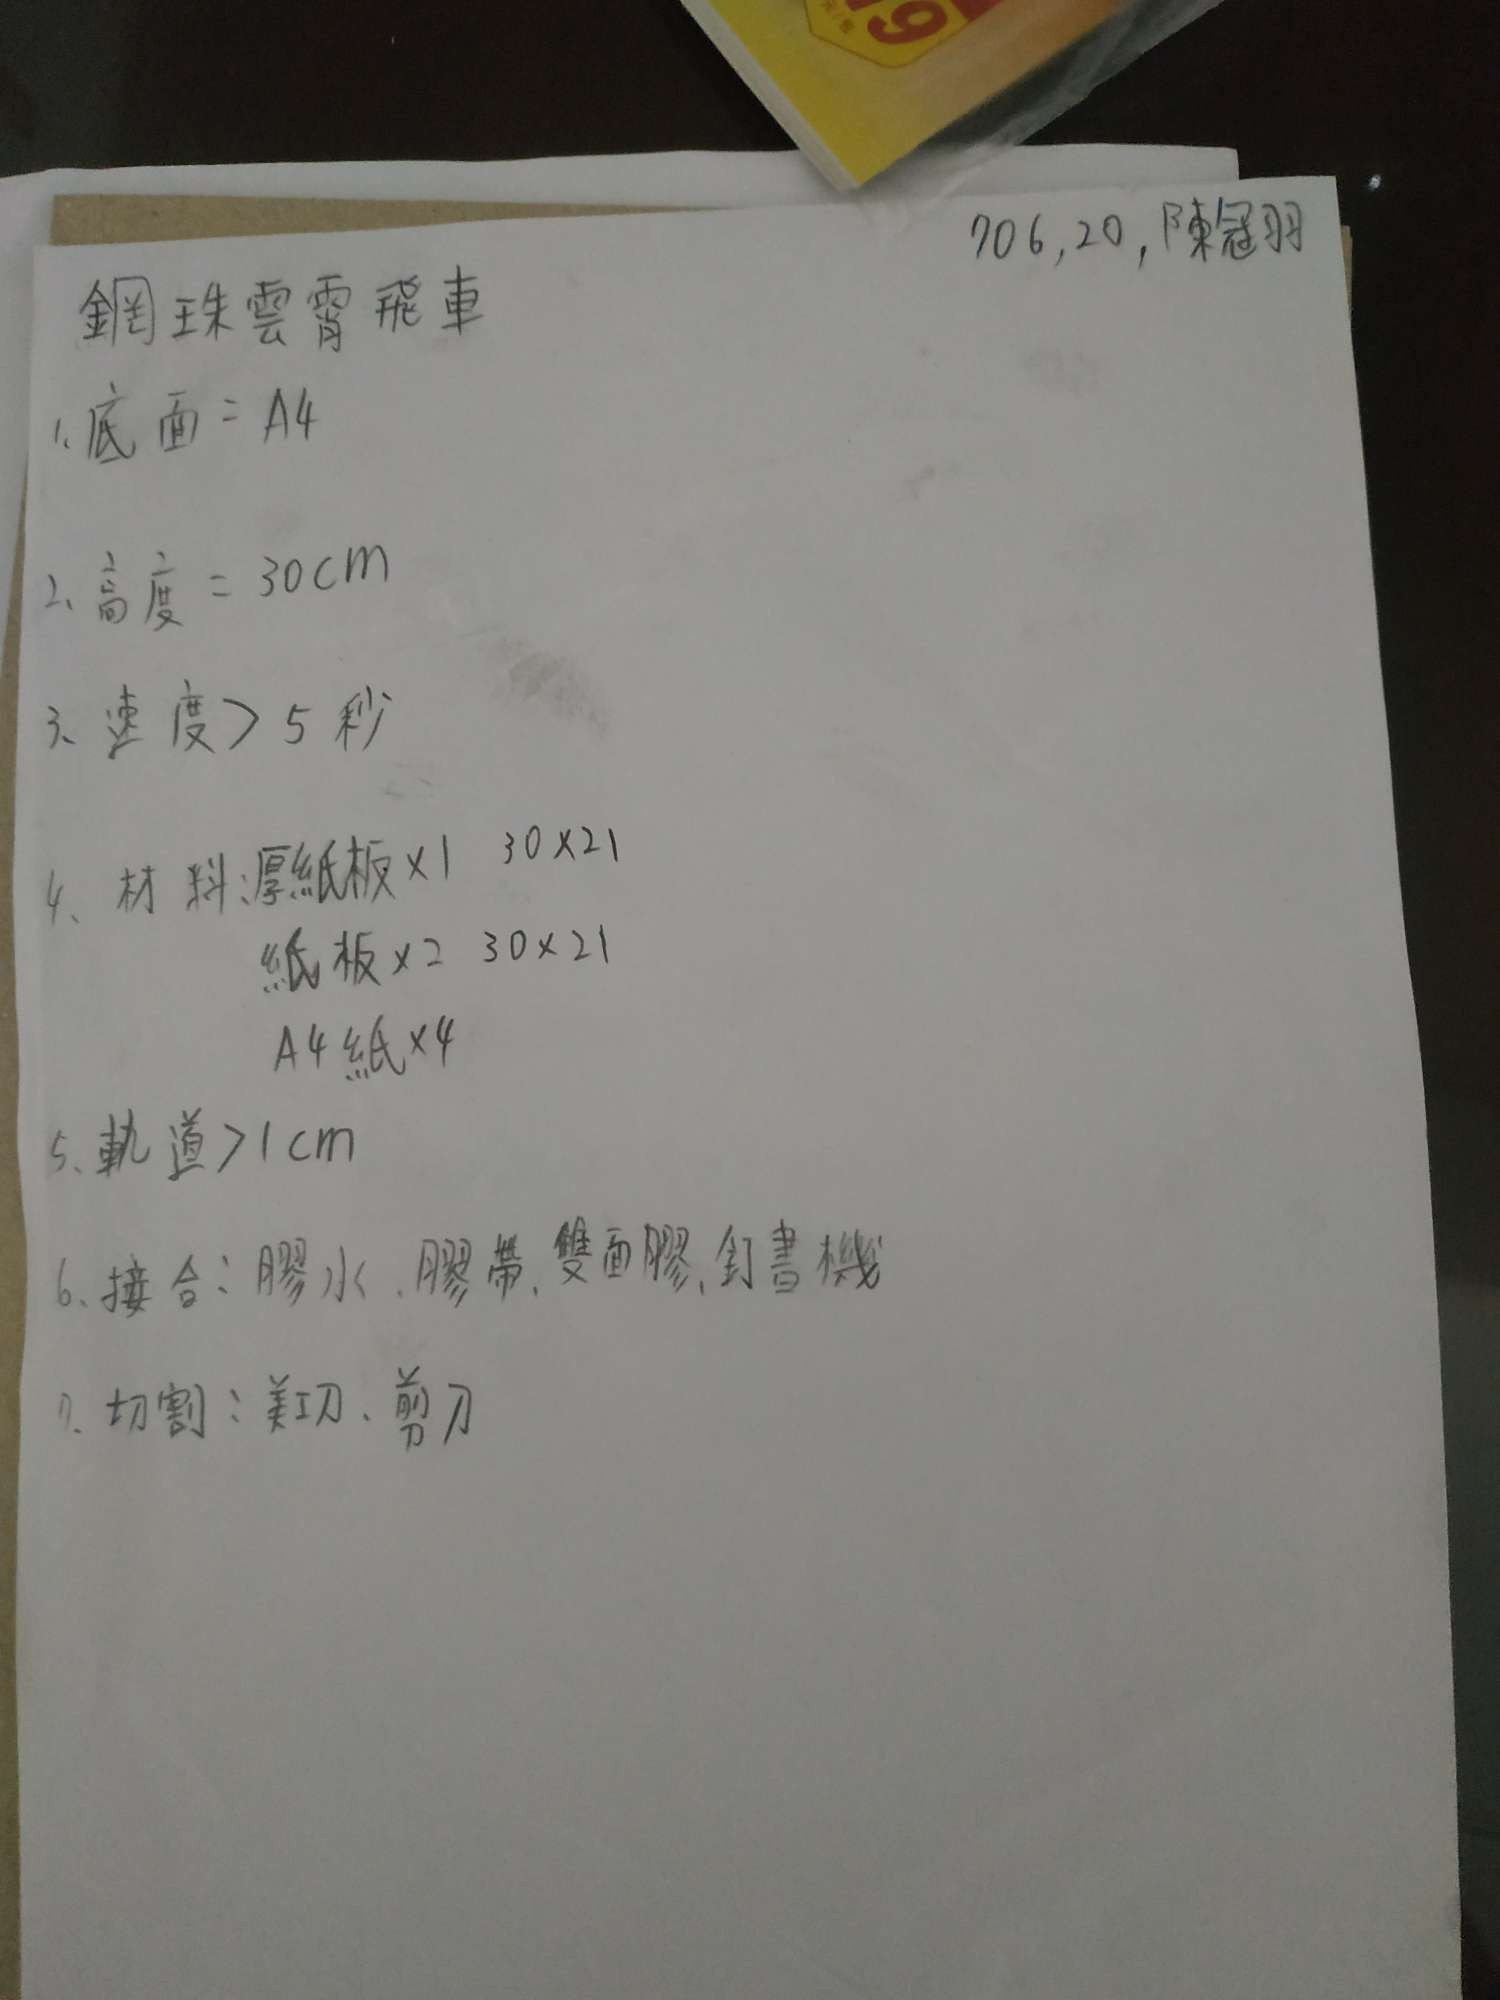 19
706,20,陳冠羽
鋼珠雲霄飛車
1、底面=A4
2、高度=30cm
3、速度>5秒
4、材料:厚紙板×1 30×21
紙板×2 30×21
A4紙×4
5、軌道>1cm
6、接合:膠水、膠帶、雙面膠、釘書機
7、切割:美工刀、剪刀